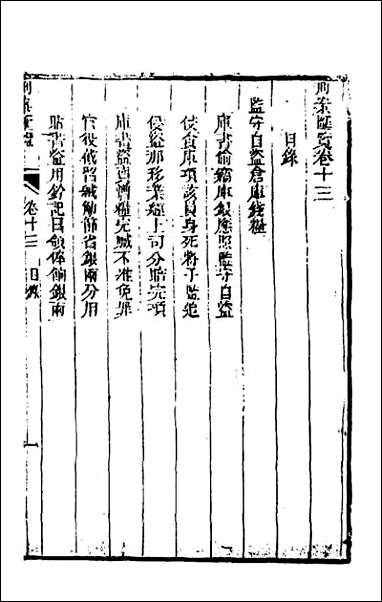 刑案匯覽卷十三
目錄
監守自盜倉庫錢糧
庫書偷竊庫銀應照監守自盜
侵食庫項該員身死將子監追
侵盜那移業經上司分賠完項
庫書盜賣漕糧完贓不准免罪
官役俄留減勛節省銀兩分用
貼書盜用鈐記冒領俸餉銀兩
刑案匯覽
卷十三 目錄
一